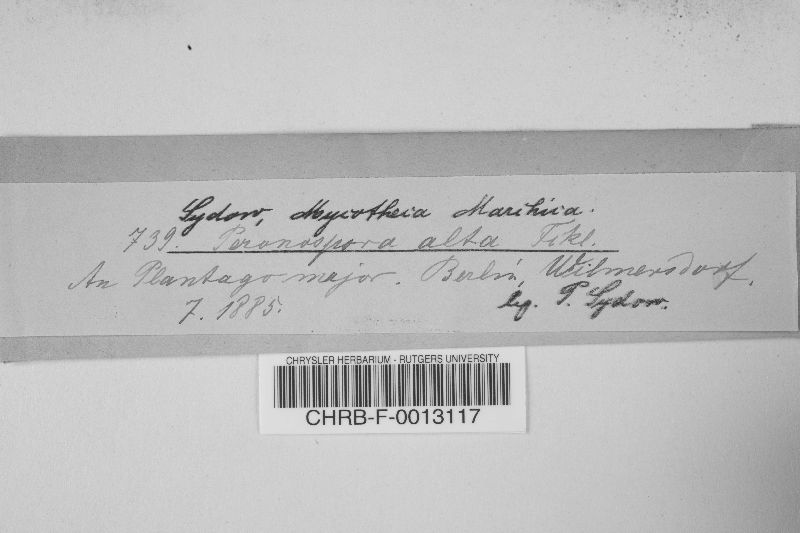 Sydow, Mycotheca Marchica.
739. Peronospora alta Fckl.
An Plantago major. Berlin, Wilmersdorf.
7. 1885. leg. P. Sydow.
CHRYSLER HERBARIUM - RUTGERS UNIVERSITY
CHRB-F-0013117